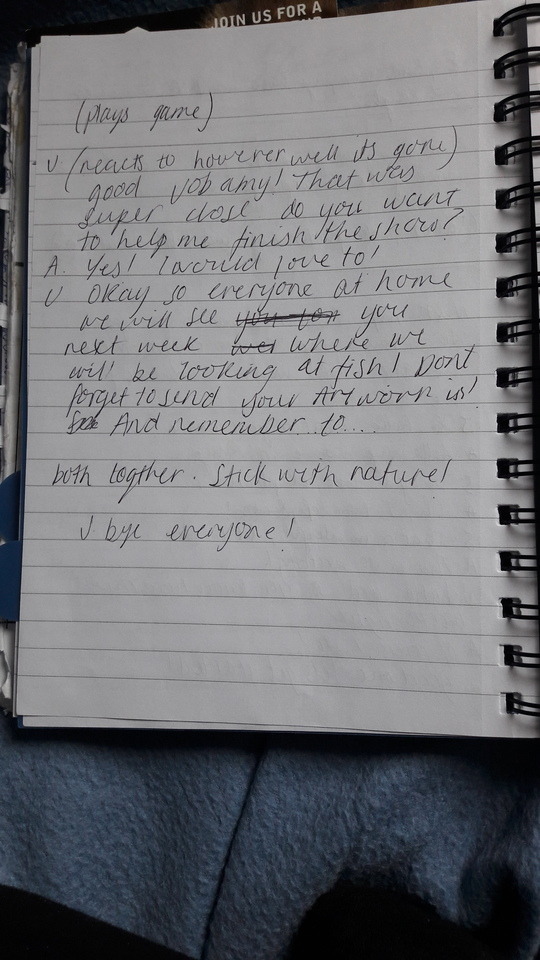 JOIN US FOR A
(plays game)
J (reacts to however well its gone)
good job amy! That was
super close do you want
to help me finish the show?
A. Yes! I would love to!
J Okay so everyone at home
we will see you you
next week where we
will be looking at fish! Dont
forget to send your Artwork in!
And remember to....
both togther. Stick with nature!
J bye everyone!